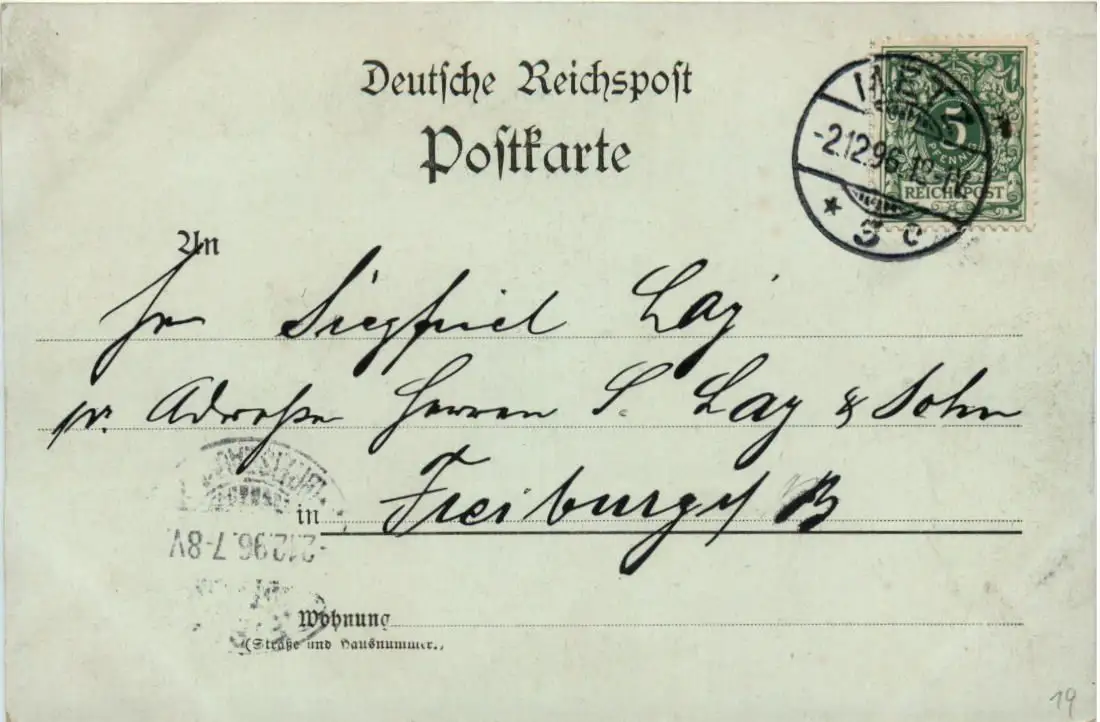 Deutsche Reichspost
Postkarte
METZ
-2.12.96. 12-1V.
* 3 c
5
PFENNIG
REICHSPOST
An
Hr Siegfried Lay
pr. Adresse Herren S. Lay & Sohn
in Freiburg i/ B
-2.12.96.7-8V
Wohnung
(Straße und Hausnummer.)
19